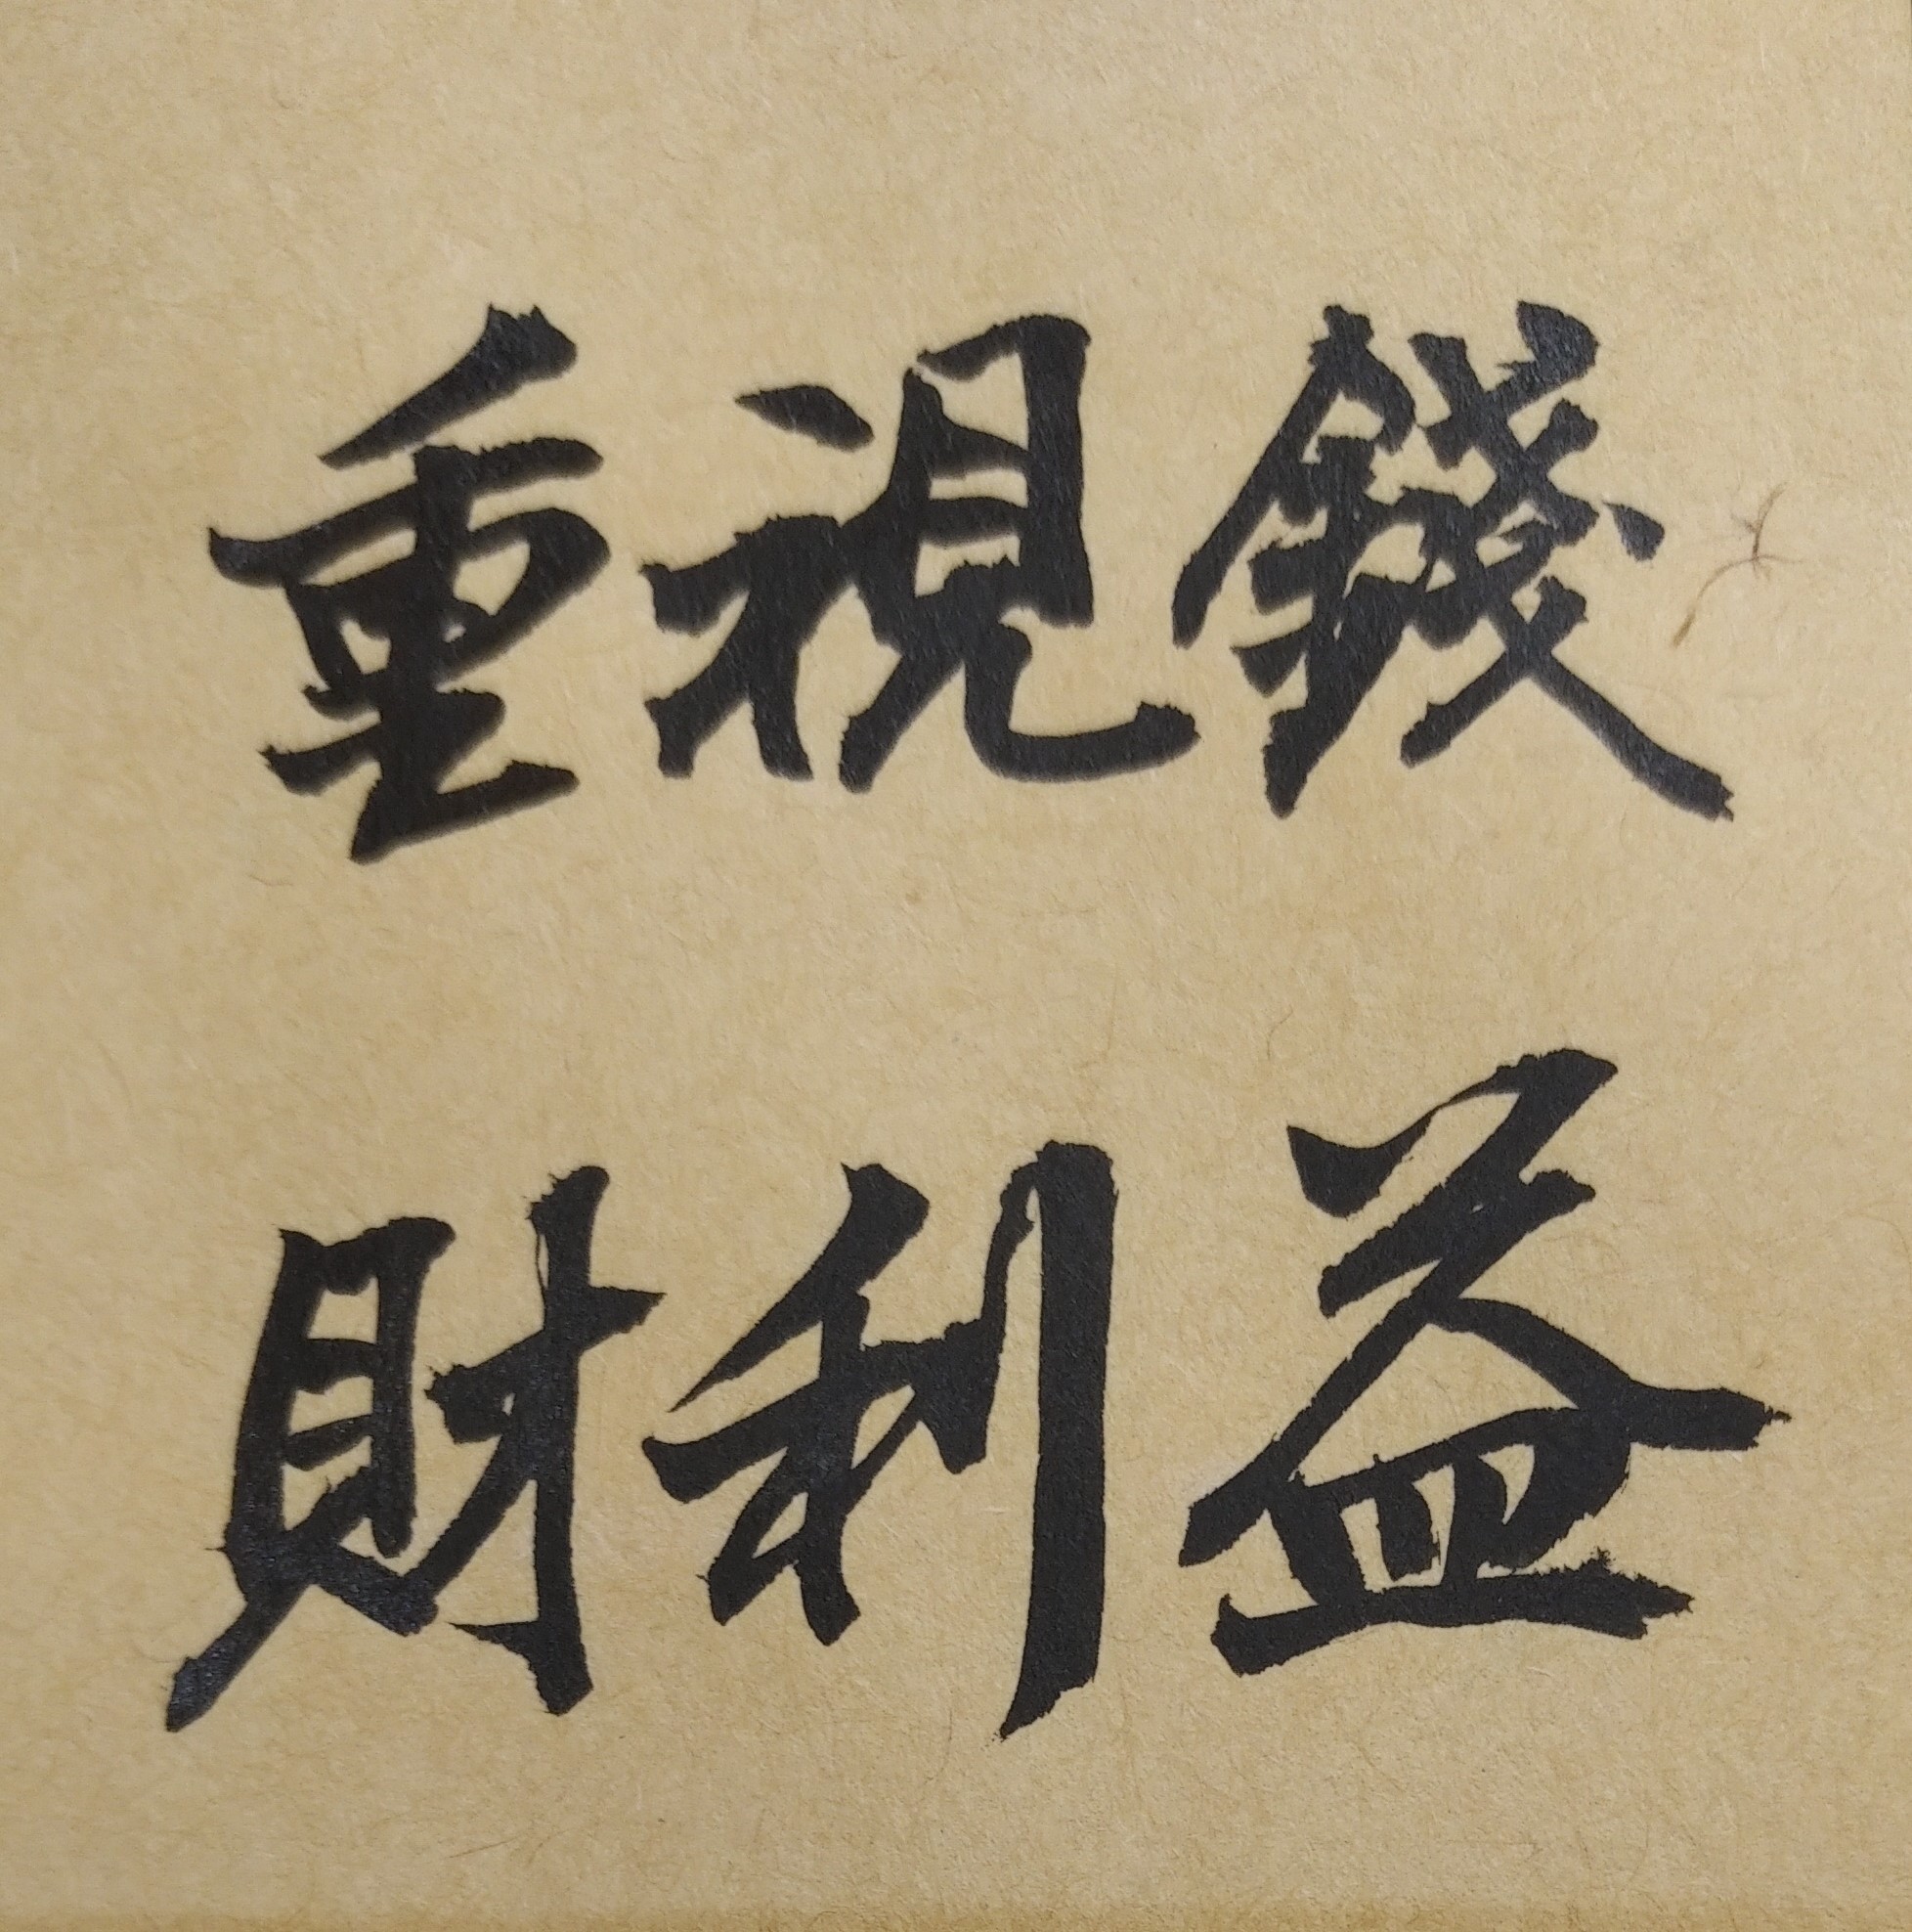 重視錢
財利益